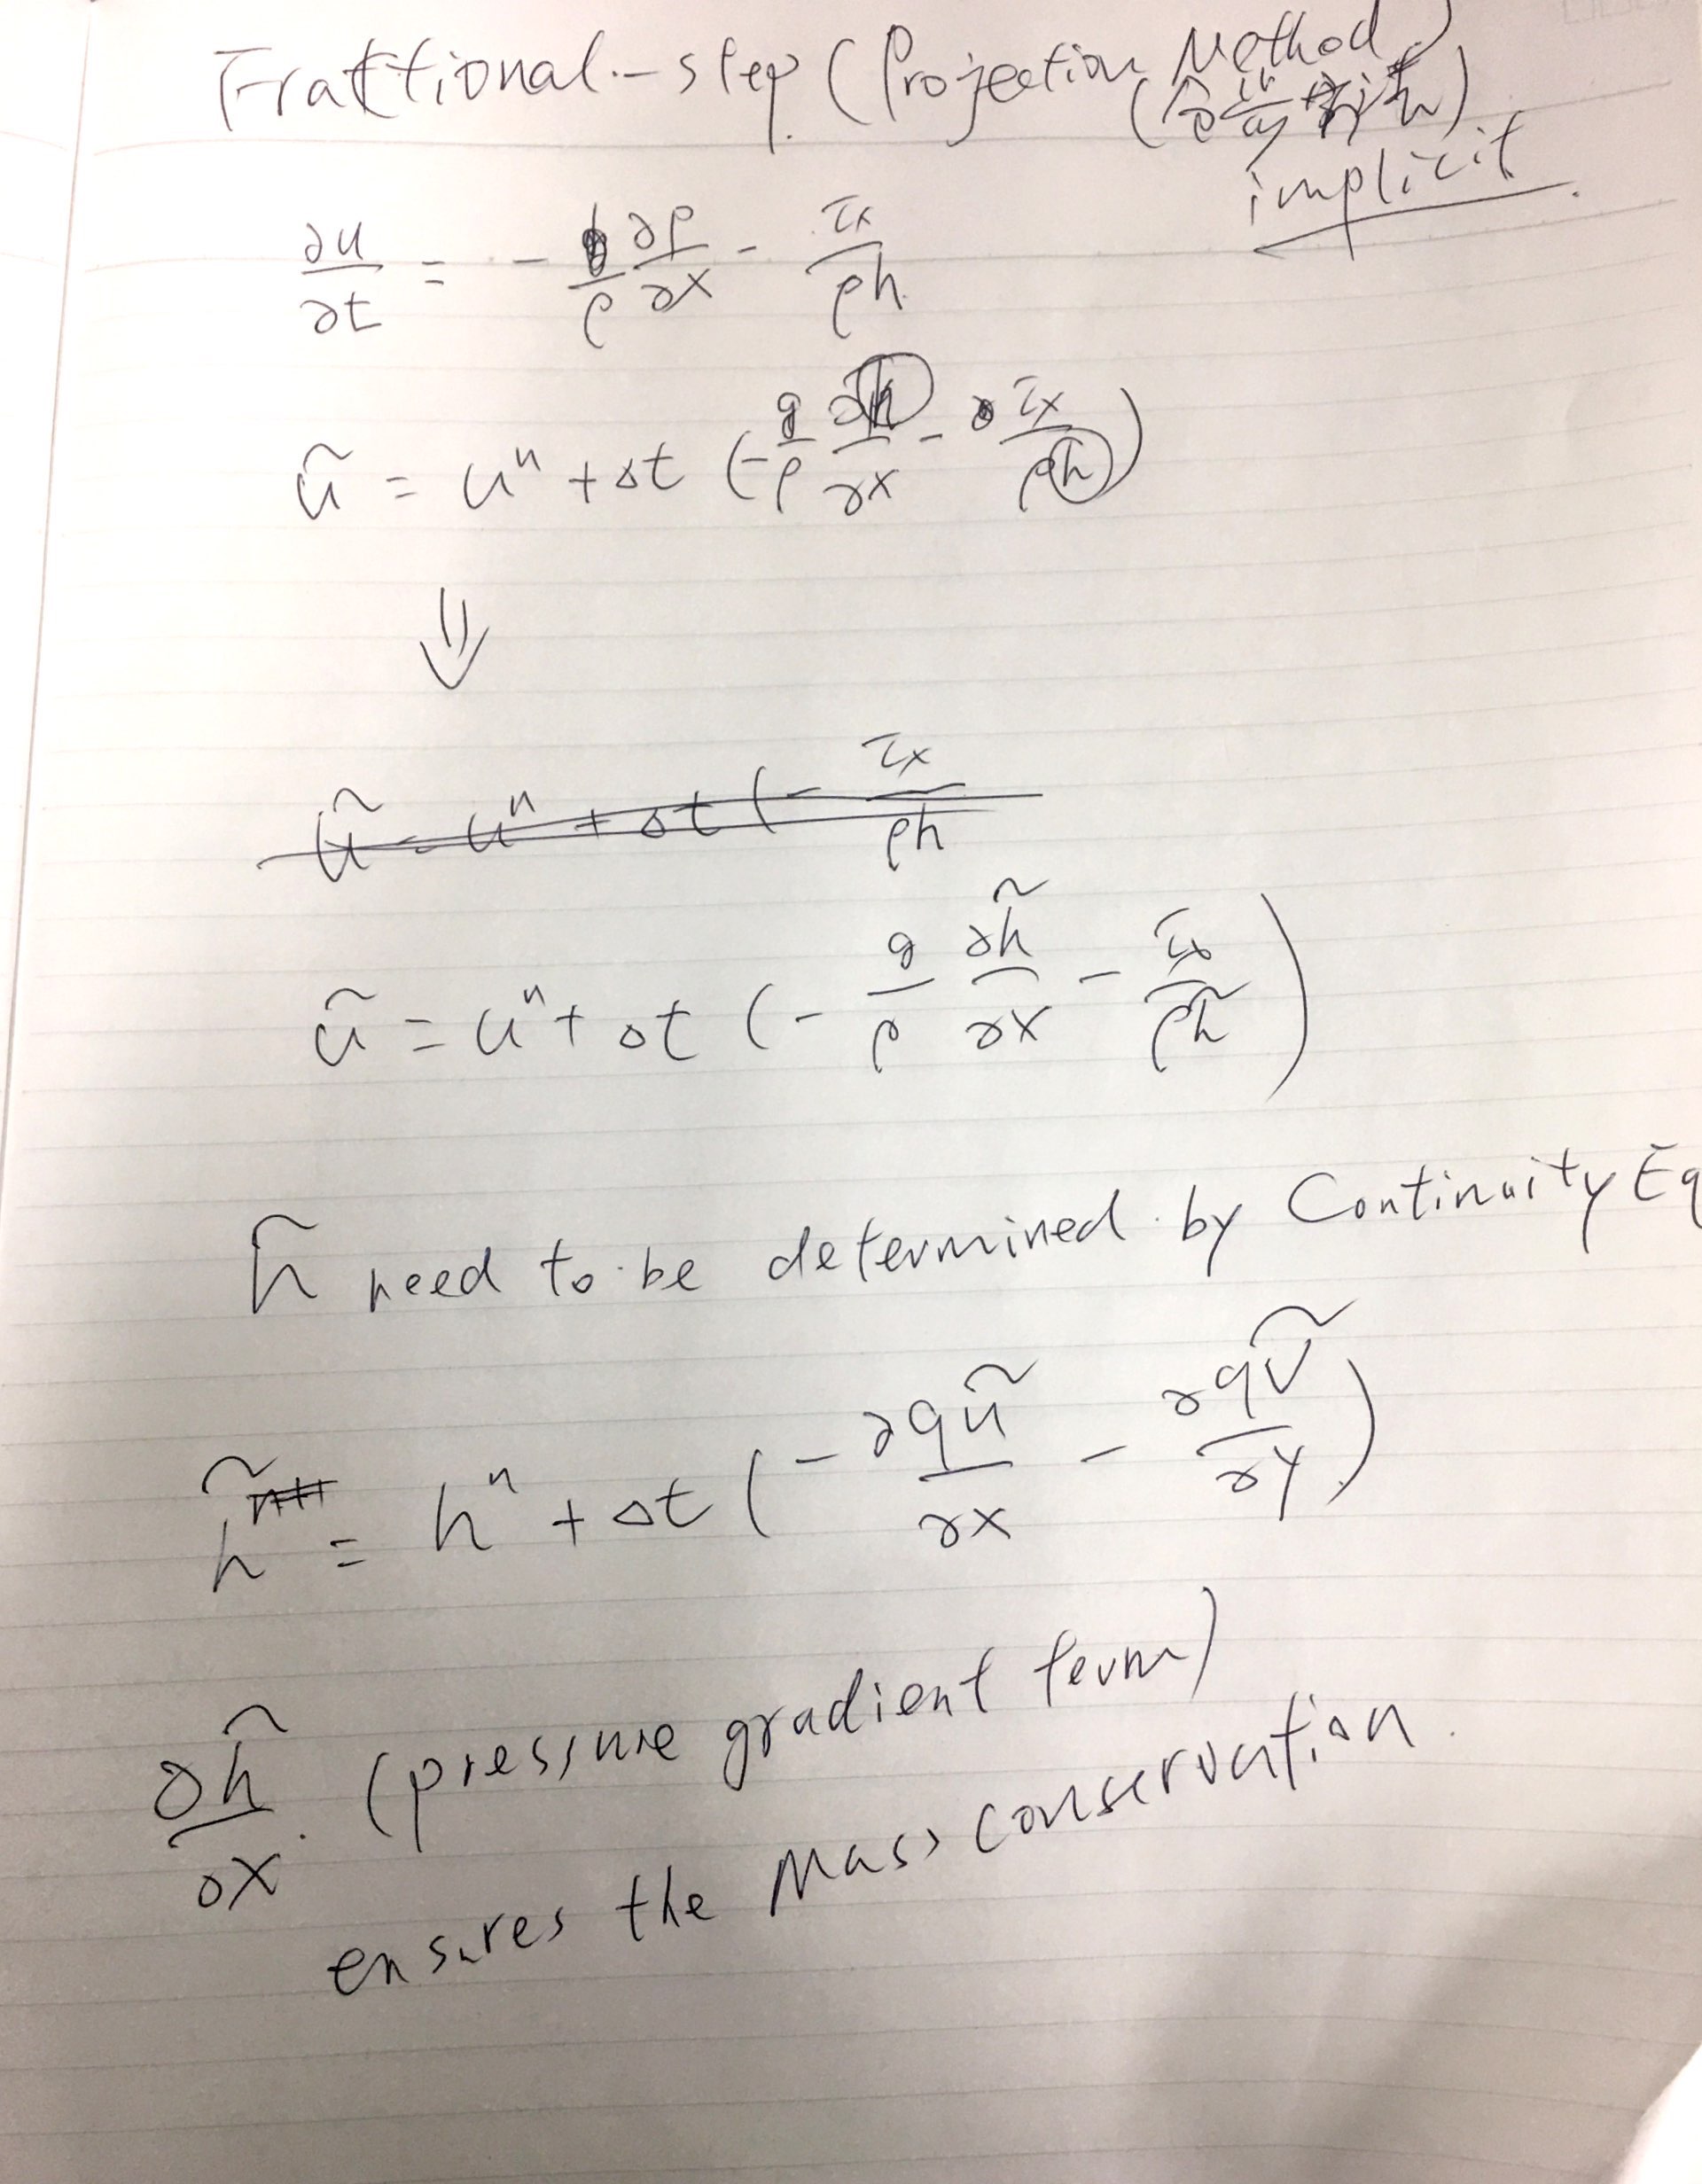 Fraktional-step (Projection Method)
implicit
∂u/∂t = - 1/ρ ∂P/∂x - τx/ρh
ũ = uⁿ + Δt (- g/ρ ∂h/∂x - τx/ρh)
⇓
ũ = uⁿ + Δt (- τx/ρh
ũ = uⁿ + Δt (- g/ρ ∂h̃/∂x - τx/ρh̃)
h̃ need to be determined by Continuity Eq
h̃ = hⁿ + Δt (- ∂qũ/∂x - ∂qṽ/∂y)
∂h̃/∂x (pressure gradient term)
ensures the Mass conservation.